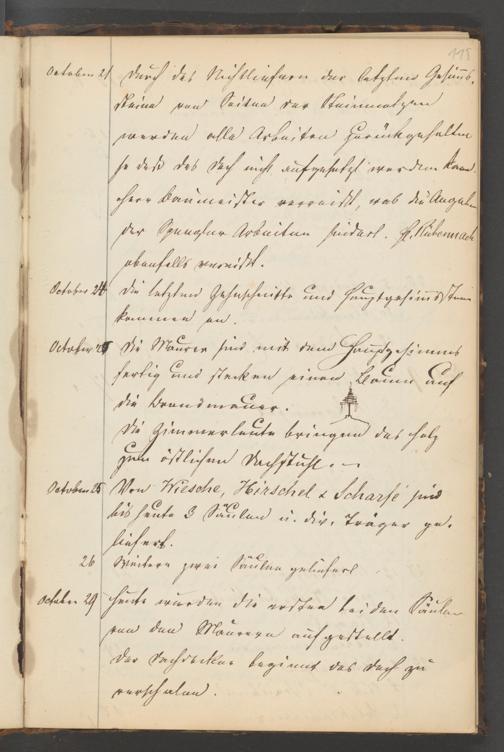 115
October 21 Durch das Nichtliefern der letzten Gesims-
steine von Seiten der Steinmetzen
werden alle Arbeiten zurückgehalten
so daß das Dach nicht aufgesetzt werden kann.
Herr Baumeister verreist, was die Angaben
der Spengler Arbeiten hindert. H.
ebenfalls verreist.
October 24 Die letzten Zahnschnitte und Hauptgesimssteine
kommen an.
October 25 Die Maurer sind mit dem Hauptgesimms
fertig und stecken einen Baum auf
die Brandmauer.
Die Zimmerleute bringen das Holz
zum östlichen Dachstuhl.
October 25 Von Kiesche, Hirschel & Scharfe sind
bis heute 3 Säulen u. div. Träger ge-
liefert.
26 Weitere zwei Säulen geliefert
October 29 Heute wurden die ersten beiden Säulen
von den Maurern aufgestellt.
Der Dachdecker beginnt das Dach zu
verschalen.